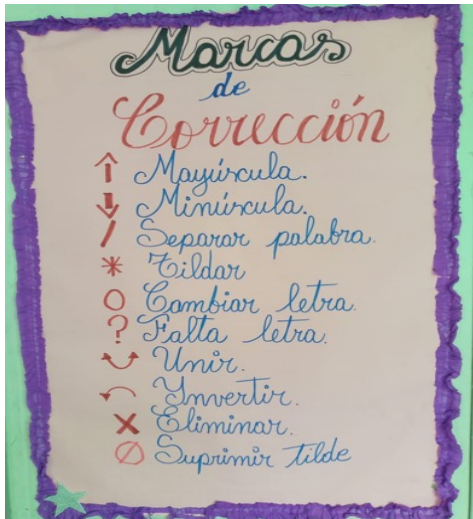 Marcas
de
Corrección
⇑ Mayúscula.
⇓ Minúscula.
/ Separar palabra.
* Tildar
O Cambiar letra.
? Falta letra.
Unir.
Invertir.
X Eliminar.
Ø Suprimir tilde